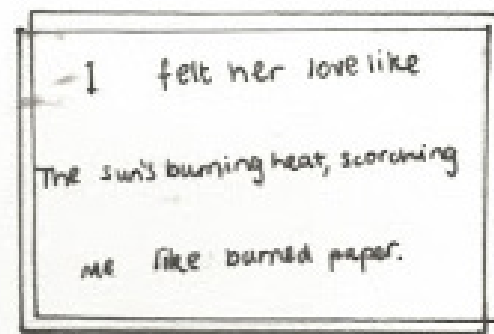 I felt her love like
The sun's burning heat, scorching
me like burned paper.